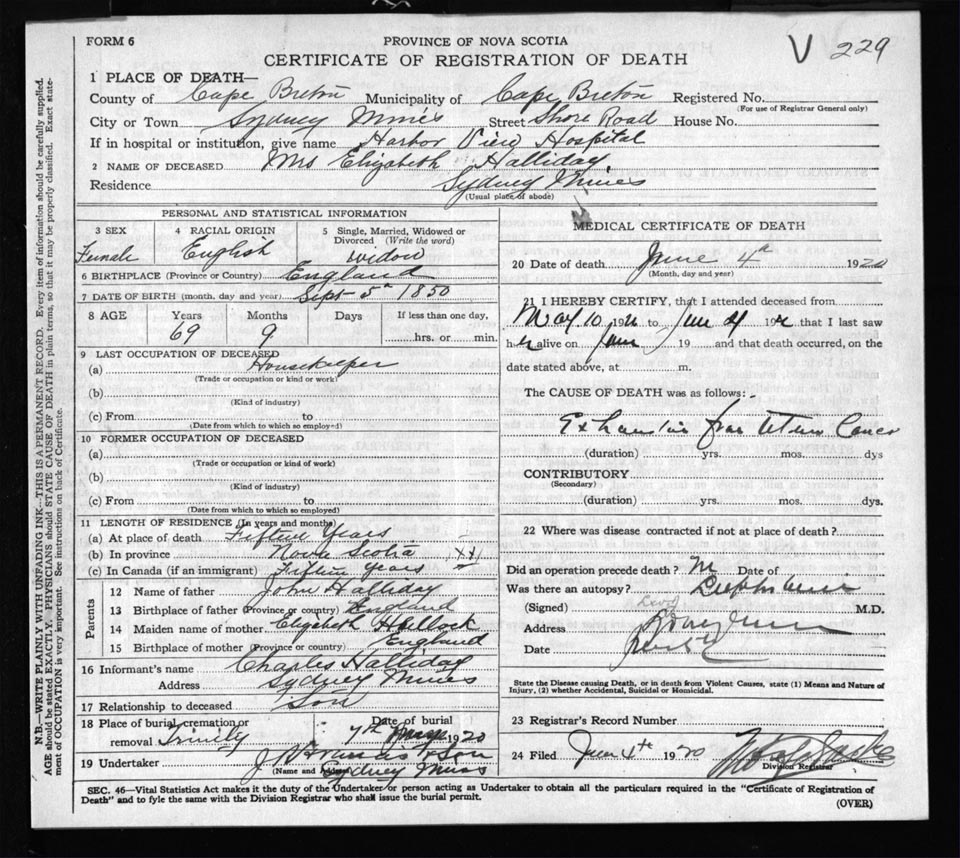 FORM 6
PROVINCE OF NOVA SCOTIA
CERTIFICATE OF REGISTRATION OF DEATH
V 229
1 PLACE OF DEATH—
County of Cape Breton Municipality of Cape Breton Registered No.
(For use of Registrar General only)
City or Town Sydney Mines Street Shore Road House No.
If in hospital or institution, give name Harbor View Hospital
2 NAME OF DECEASED Mrs Elizabeth Halliday
Residence Sydney Mines
(Usual place of abode)
PERSONAL AND STATISTICAL INFORMATION
3 SEX 4 RACIAL ORIGIN 5 Single, Married, Widowed or Divorced (Write the word)
Female English widow
6 BIRTHPLACE (Province or Country) England
7 DATE OF BIRTH (month, day and year) Sept 5th 1850
8 AGE Years Months Days If less than one day,
69 9 hrs. or min.
9 LAST OCCUPATION OF DECEASED
(a) Housekeeper
(Trade or occupation or kind or work)
(b)
(Kind of industry)
(c) From to
(Date from which to which so employed)
10 FORMER OCCUPATION OF DECEASED
(a)
(Trade or occupation or kind of work)
(b)
(Kind of industry)
(c) From to
(Date from which to which so employed)
11 LENGTH OF RESIDENCE (In years and months)
(a) At place of death Fifteen Years
(b) In province Nova Scotia XXI
(c) In Canada (if an immigrant) Fifteen years
Parents
12 Name of father John Halliday
13 Birthplace of father (Province or country) England
14 Maiden name of mother Elizabeth Hallock
15 Birthplace of mother (Province or country) England
16 Informant's name Charles Halliday
Address Sydney Mines
17 Relationship to deceased Son
18 Place of burial, cremation or removal Trinity Date of burial 7th 1920
19 Undertaker & Son
(Name and Address) Sydney Mines
MEDICAL CERTIFICATE OF DEATH
20 Date of death June 4th 1920
(Month, day and year)
21 I HEREBY CERTIFY, that I attended deceased from
May 10 192 to June 4 192 that I last saw
h alive on June 19 and that death occurred, on the
date stated above, at m.
The CAUSE OF DEATH was as follows:-
Exhaustion from Uterine Cancer
(duration) yrs. mos. dys
CONTRIBUTORY
(Secondary)
(duration) yrs. mos. dys.
22 Where was disease contracted if not at place of death?
Did an operation precede death? Date of
Was there an autopsy?
(Signed) M.D.
Address
Date
State the Disease causing Death, or in death from Violent Causes, state (1) Means and Nature of
Injury, (2) whether Accidental, Suicidal or Homicidal.
23 Registrar's Record Number
24 Filed June 4th 1920
Division Registrar
SEC. 46—Vital Statistics Act makes it the duty of the Undertaker or person acting as Undertaker to obtain all the particulars required in the "Certificate of Registration of
Death" and to fyle the same with the Division Registrar who shall issue the burial permit.
(OVER)
N.B.—WRITE PLAINLY WITH UNFADING INK—THIS IS A PERMANENT RECORD. Every item of information should be carefully supplied.
AGE should be stated EXACTLY. PHYSICIANS should STATE CAUSE OF DEATH in plain terms, so that it may be properly classified. Exact state-
ment of OCCUPATION is very important. See instructions on back of Certificate.